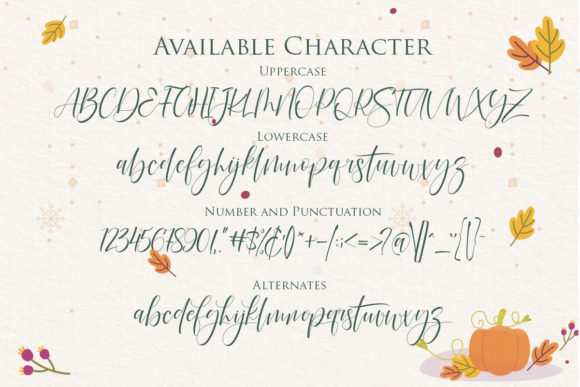 Available Character
Uppercase
ABCDEFGHIJKLMNOPQRSTUVWXYZ
Lowercase
abcdefghijklmnopqrstuvwxyz
Number and Punctuation
1234567890!,"#$%&'()*+-/:;<=>?@\|^_~{}-
Alternates
abcdefghijklmnopqrstuvwxyz